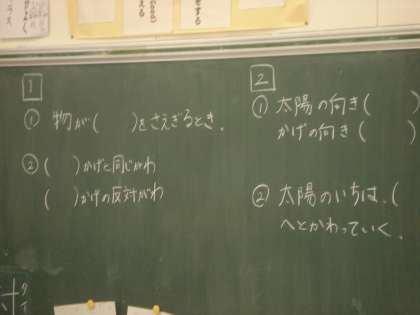 1
① 物が(　　)をさえぎるとき.
② (　　)かげと同じがわ
(　　)かげの反対がわ
2
① 太陽の向き(　　)
かげの向き(　　)
② 太陽のいちは、(
へとかわっていく.